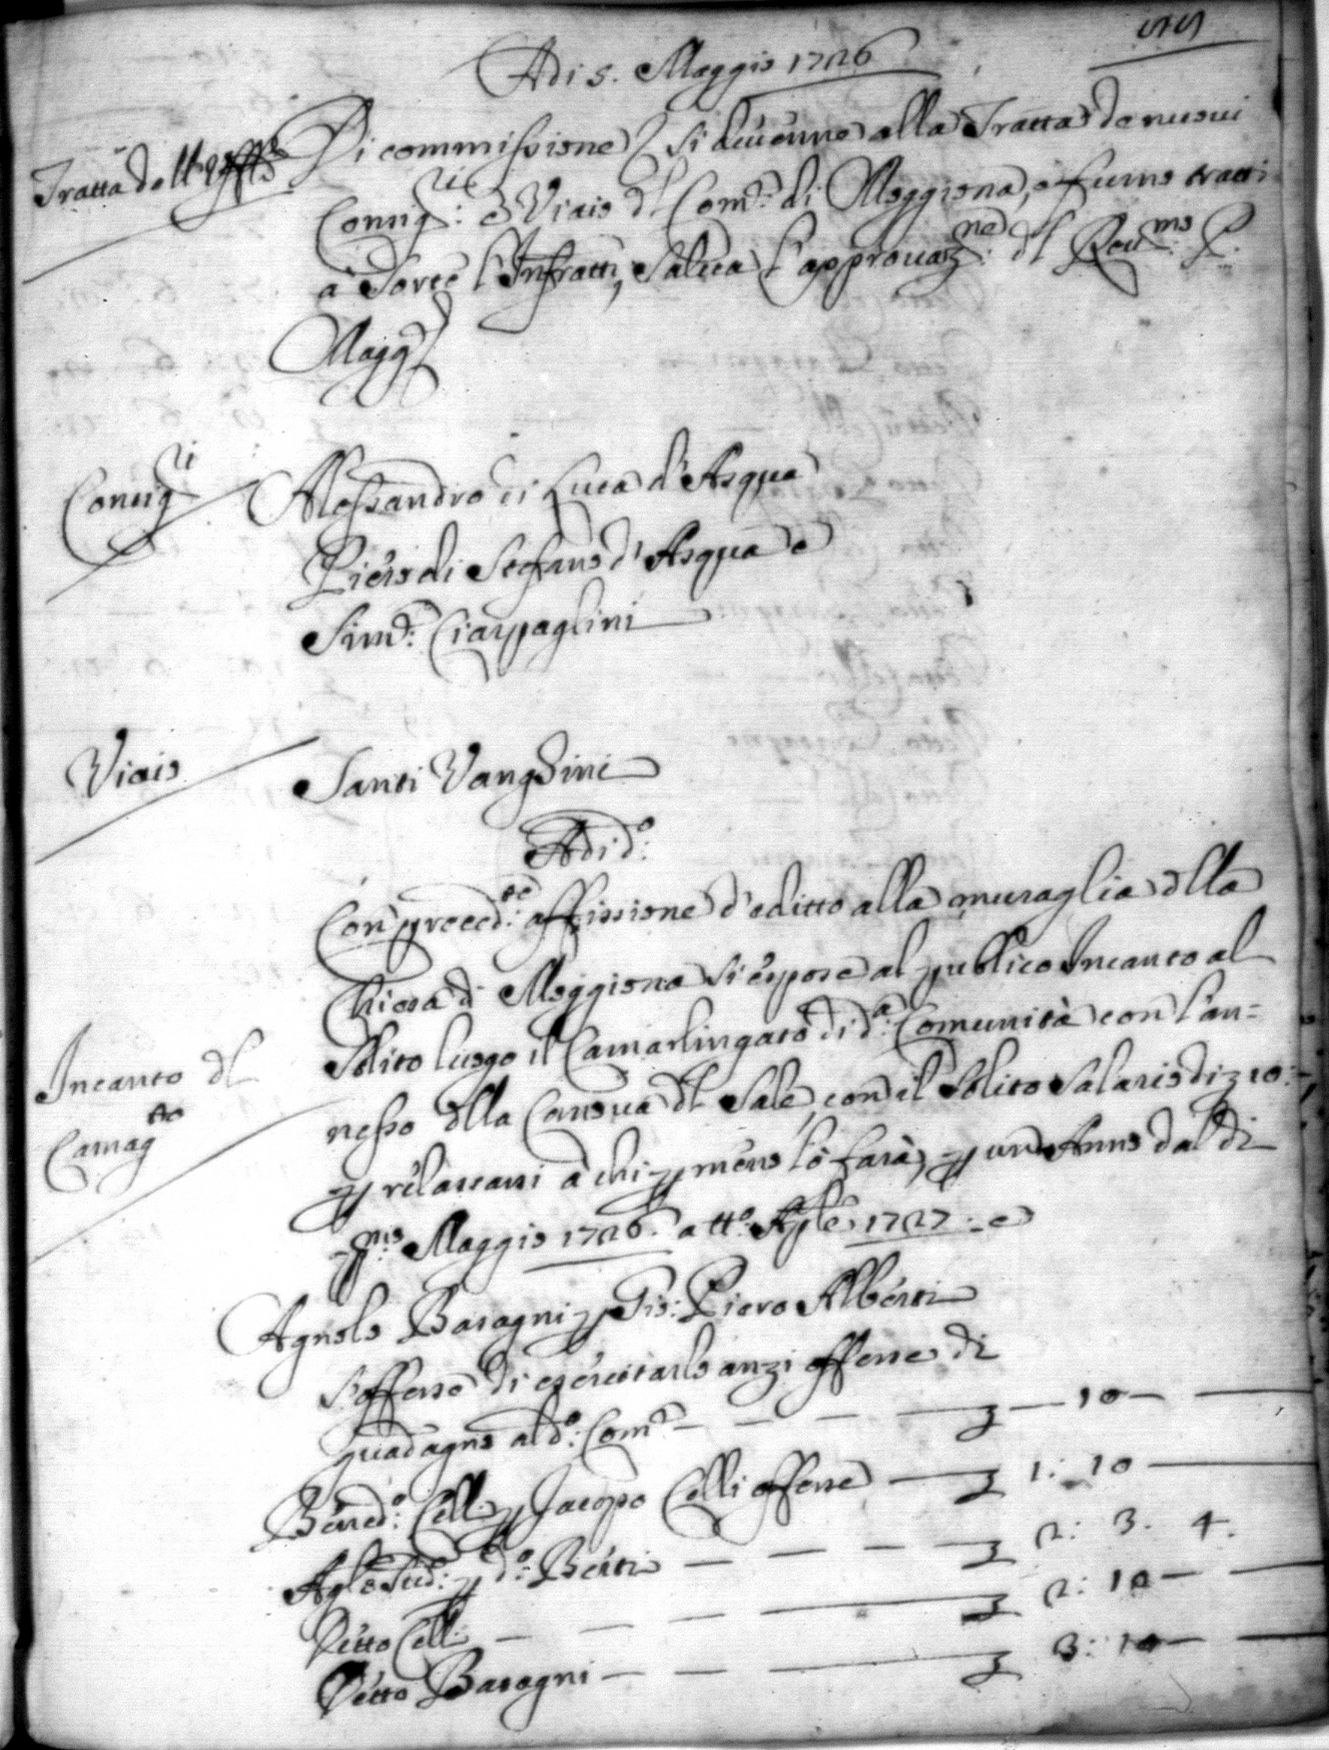 55
Adi 5. Maggio 1726
Tratta dell'Uffo
Di commissione si devenne alla Tratta de nuovi
Consigri: e Viaio dl Comè: di Moggiona, e furno tratti
à Sorte l'Infratti, Salva l'approvazne: dl Revmo: P.
Magg
Consigri
Alessandro di Luca d'Asqua
Piero di Stefano d'Asqua e
Simè: Ciarpaglini
Viaio
Santi Vanghini
Adi do:
Con precedte: affissione d'editto alla muraglia dlla
Chiesa di Moggiona si espose al publico Incanto al
Solito luogo il Camarlingato di da: Comunità con l'an=
nesso dlla Canova dl Sale, con il Solito Salario di z 10:
Incanto dl
Camagto
p rilasciarsi à chi p meno lo farà, p un Anno dal di
pmo: Maggio 1726. a tto: Aple 1727: e
Agnolo Baragni p Gio: Piero Alberti
s'offerse di esercitarlo anzi offerse di
guadagno al do: Comè — — — z — 10 —
Benedo: Celli p Jacopo Celli offerse — z 1: 10 —
p do: Berti — — — z 2: 3. 4.
Detto Celli — — — z 2: 10 —
Detto Baragni — — — z 3: 10 —